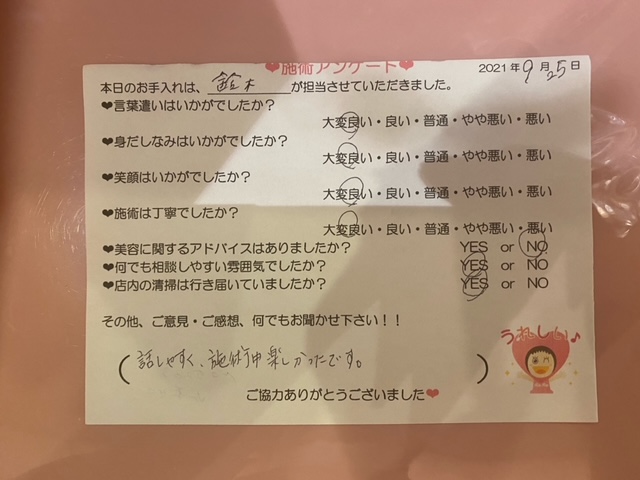 ❤施術アンケート❤
2021年9月25日
本日のお手入れは、鈴木が担当させていただきました。
❤言葉遣いはいかがでしたか？
大変良い・良い・普通・やや悪い・悪い
❤身だしなみはいかがでしたか？
大変良い・良い・普通・やや悪い・悪い
❤笑顔はいかがでしたか？
大変良い・良い・普通・やや悪い・悪い
❤施術は丁寧でしたか？
大変良い・良い・普通・やや悪い・悪い
❤美容に関するアドバイスはありましたか？ YES or NO
❤何でも相談しやすい雰囲気でしたか？ YES or NO
❤店内の清掃は行き届いていましたか？ YES or NO
その他、ご意見・ご感想、何でもお聞かせ下さい！！
うれしい♪
(話しやすく、施術中楽しかったです。)
ご協力ありがとうございました❤